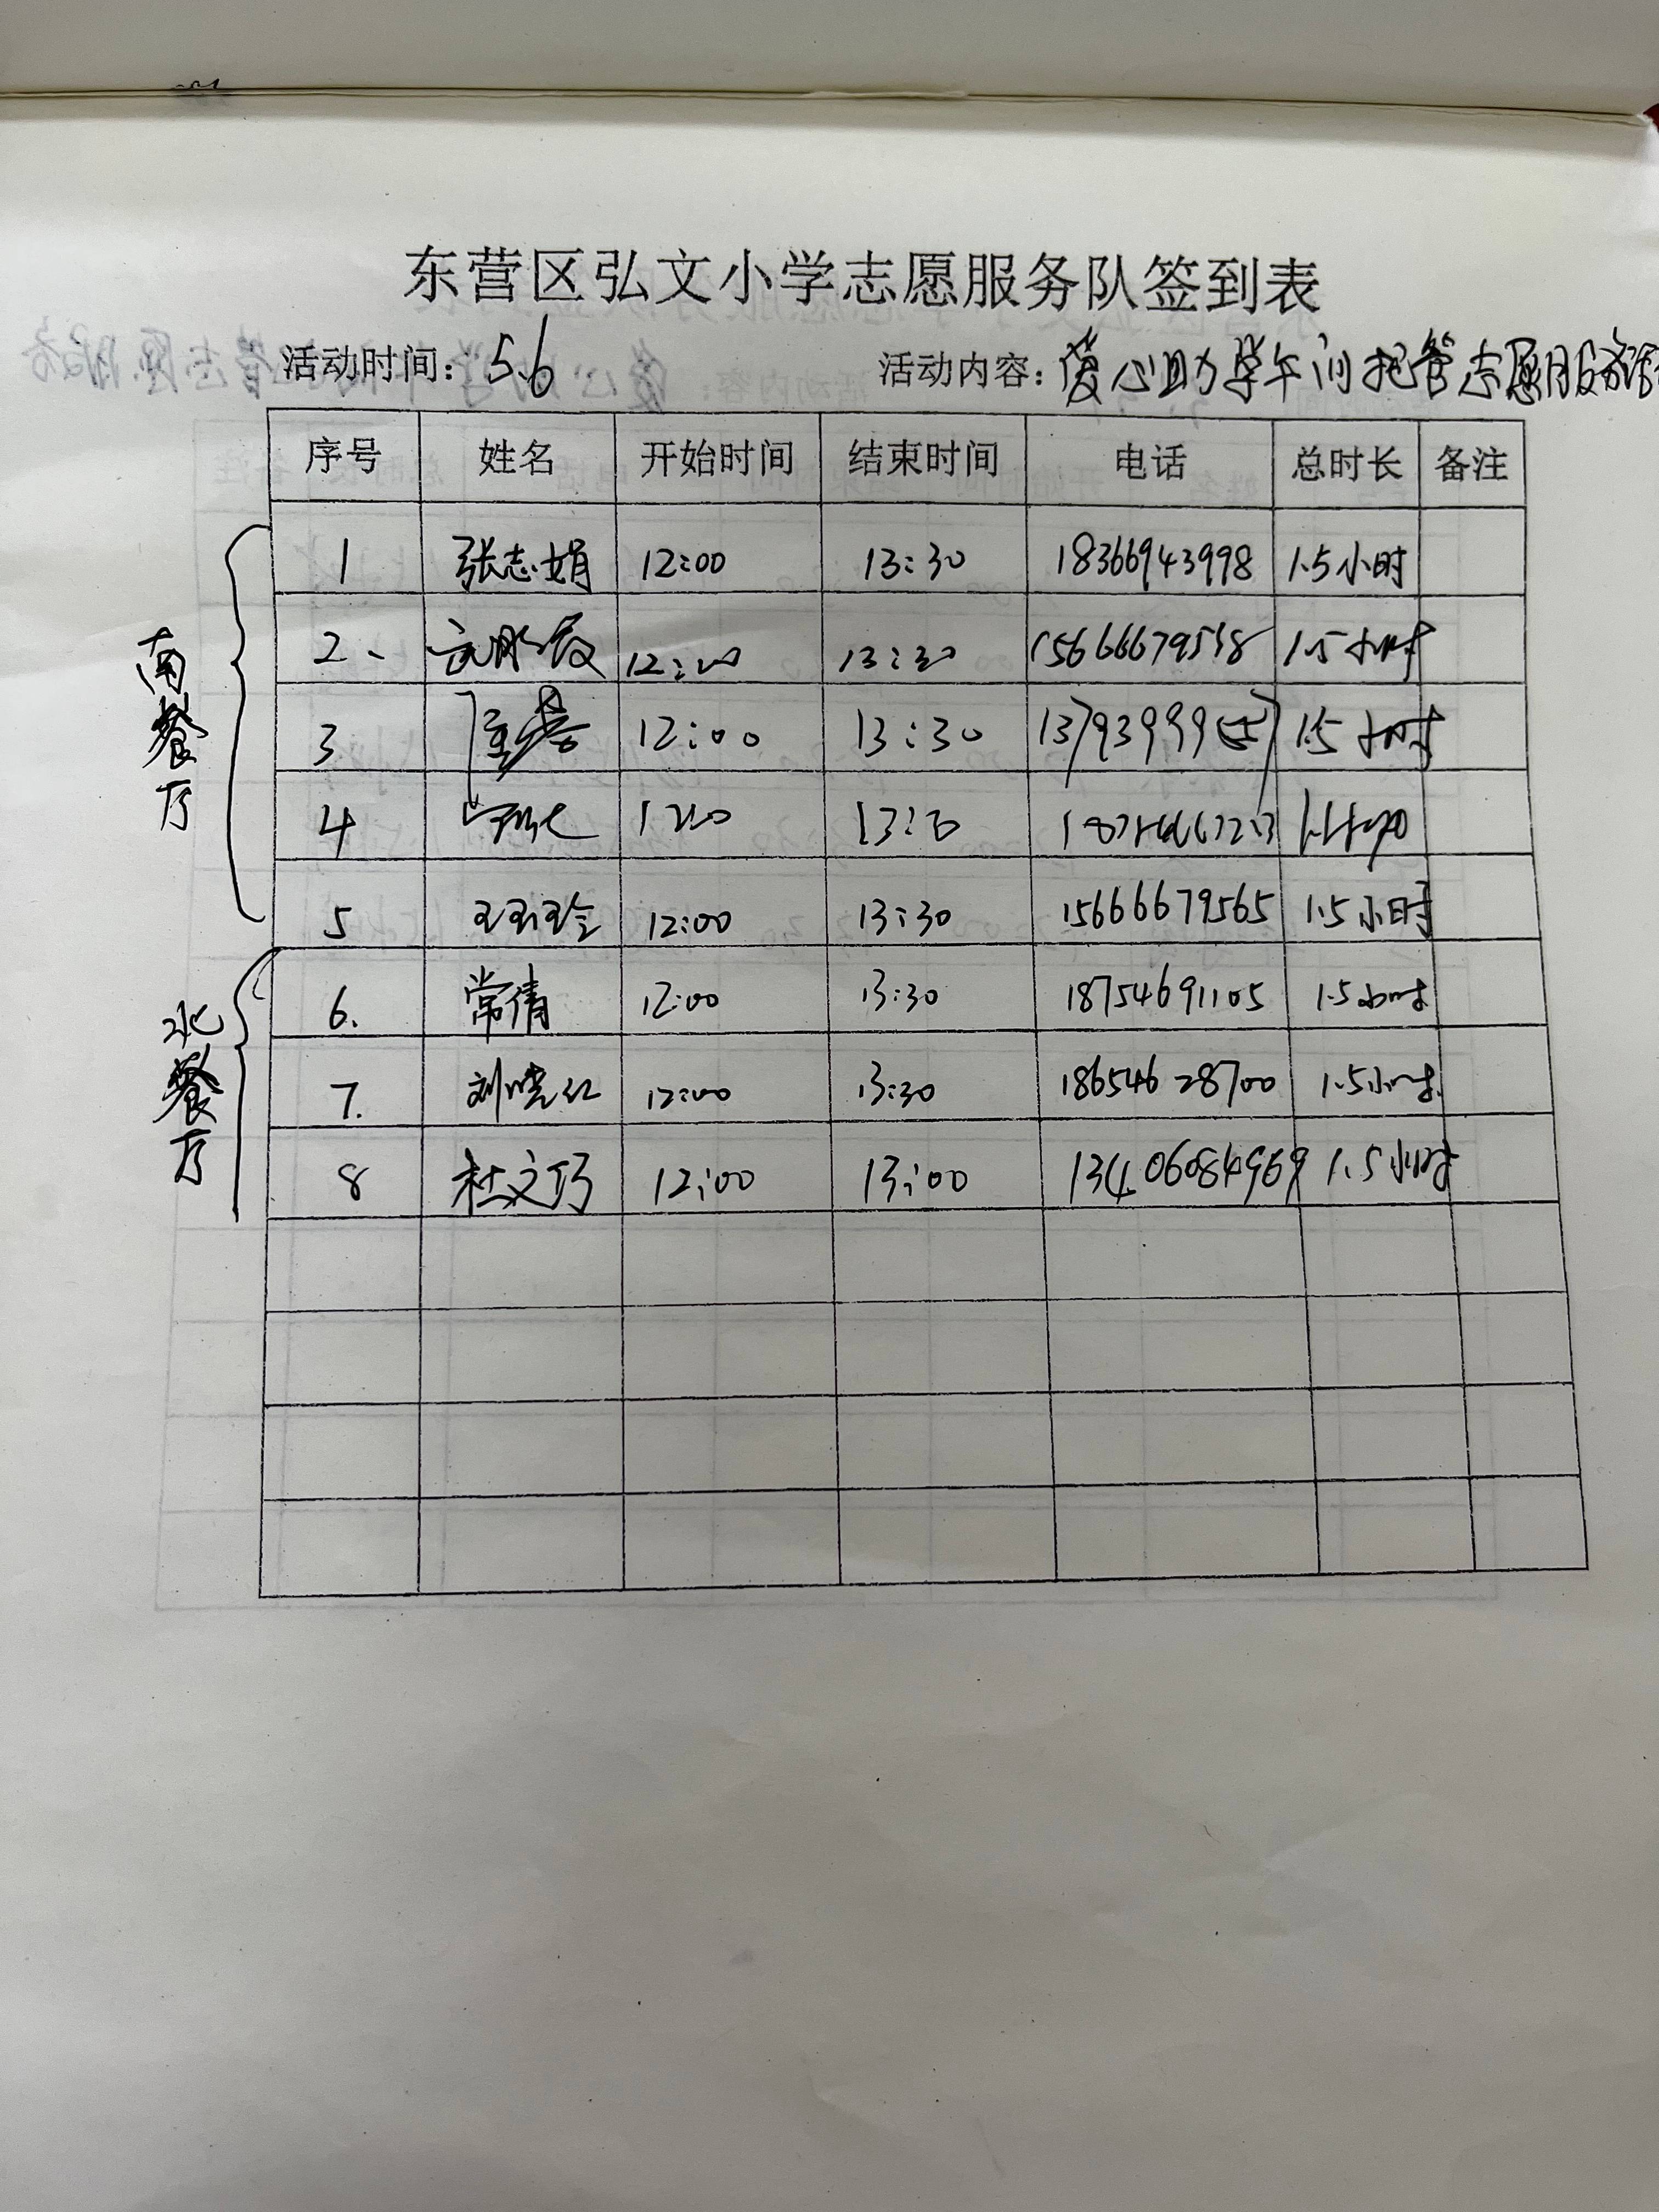 东营区弘文小学志愿服务队签到表
活动时间：5.6 活动内容：爱心助学午间托管志愿服务活
序号 姓名 开始时间 结束时间 电话 总时长 备注
南餐厅
1 张志娟 12:00 13:30 18366943998 1.5小时
2、 12:00 13:30 1.5小时
3 12:00 13:30 1.5小时
4
5 王玉玲 12:00 13:30 15666679565 1.5小时
北餐厅
6. 常倩 12:00 13:30 18754691105 1.5小时
7. 刘晓红 12:00 13:30 18654628700 1.5小时
8 杜文巧 12:00 13:00 13406084969 1.5小时